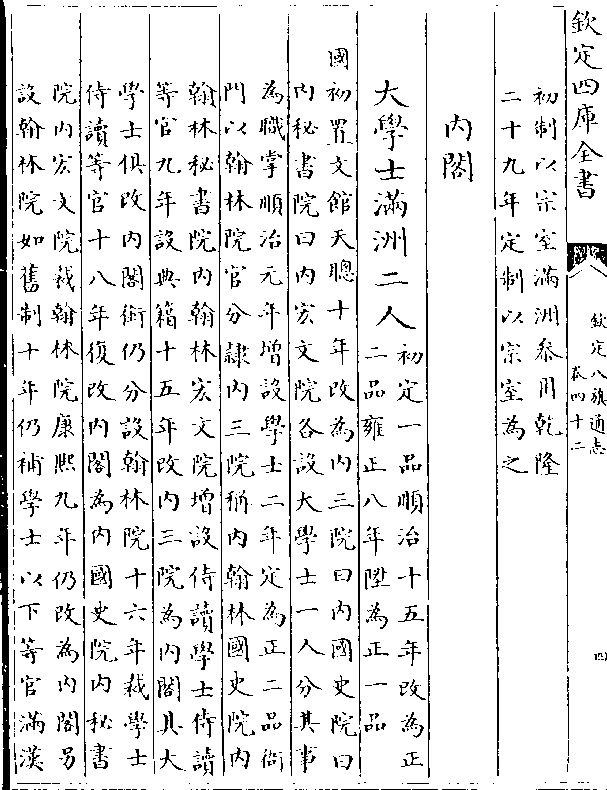 欽定四庫全書
欽定八旗通志
卷四十二
四
初制以宗室滿洲叅用乾隆
二十九年定制以宗室為之
內閣
大學士滿洲二人初定一品順治十五年改為正
二品雍正八年陞為正一品
國初置文館天聰十年改為內三院曰內國史院曰
內秘書院曰內宏文院各設大學士一人分其事
為職掌順治元年增設學士二年定為正二品衙
門以翰林院官分隸內三院稱內翰林國史院內
翰林秘書院內翰林宏文院增設侍讀學士侍讀
等官九年設典籍十五年改內三院為內閣其大
學士俱改內閣銜仍分設翰林院十六年裁學士
侍讀等官十八年復改內閣為內國史院內秘書
院內宏文院裁翰林院康熙九年仍改為內閣另
設翰林院如舊制十年仍補學士以下等官滿漢